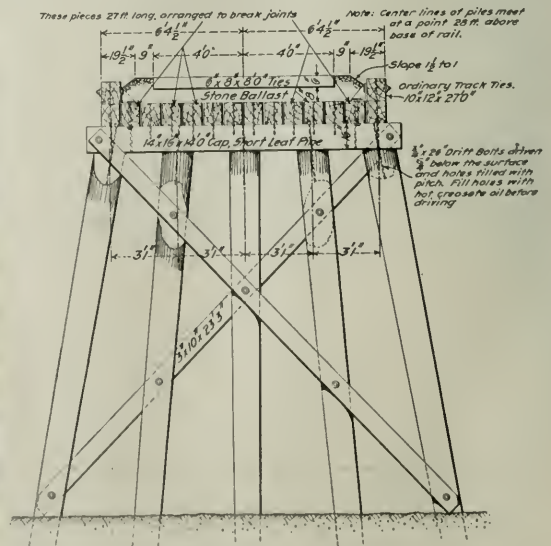 These pieces 27 ft. long, arranged to break joints
Note: Center lines of piles meet
at a point 28 ft. above
base of rail.
6'4½" 6'4½"
19½" 9" 4'0" 4'0" 9" 19½"
Slope 1½ to 1
6"x 8"x 8'0" Ties
Stone Ballast
Ordinary Track Ties.
10"x12"x 27'0"
14"x16"x14'0" Cap Short Leaf Pine
x 26" Drift Bolts driven
below the surface
and holes filled with
pitch. Fill holes with
hot creosote oil before
driving
3'1" 3'1" 3'1" 3'1"
3"x10"x 23'3"